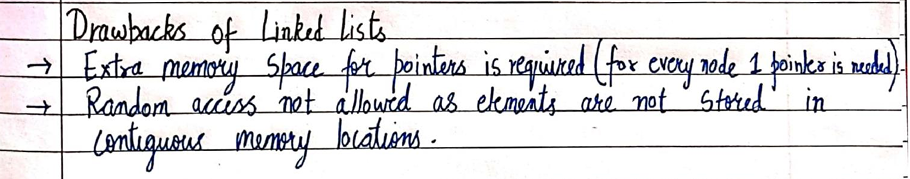 Drawbacks of Linked Lists
→ Extra memory Space for pointers is required (for every node 1 pointer is needed).
→ Random access not allowed as elements are not Stored in
contiguous memory locations.